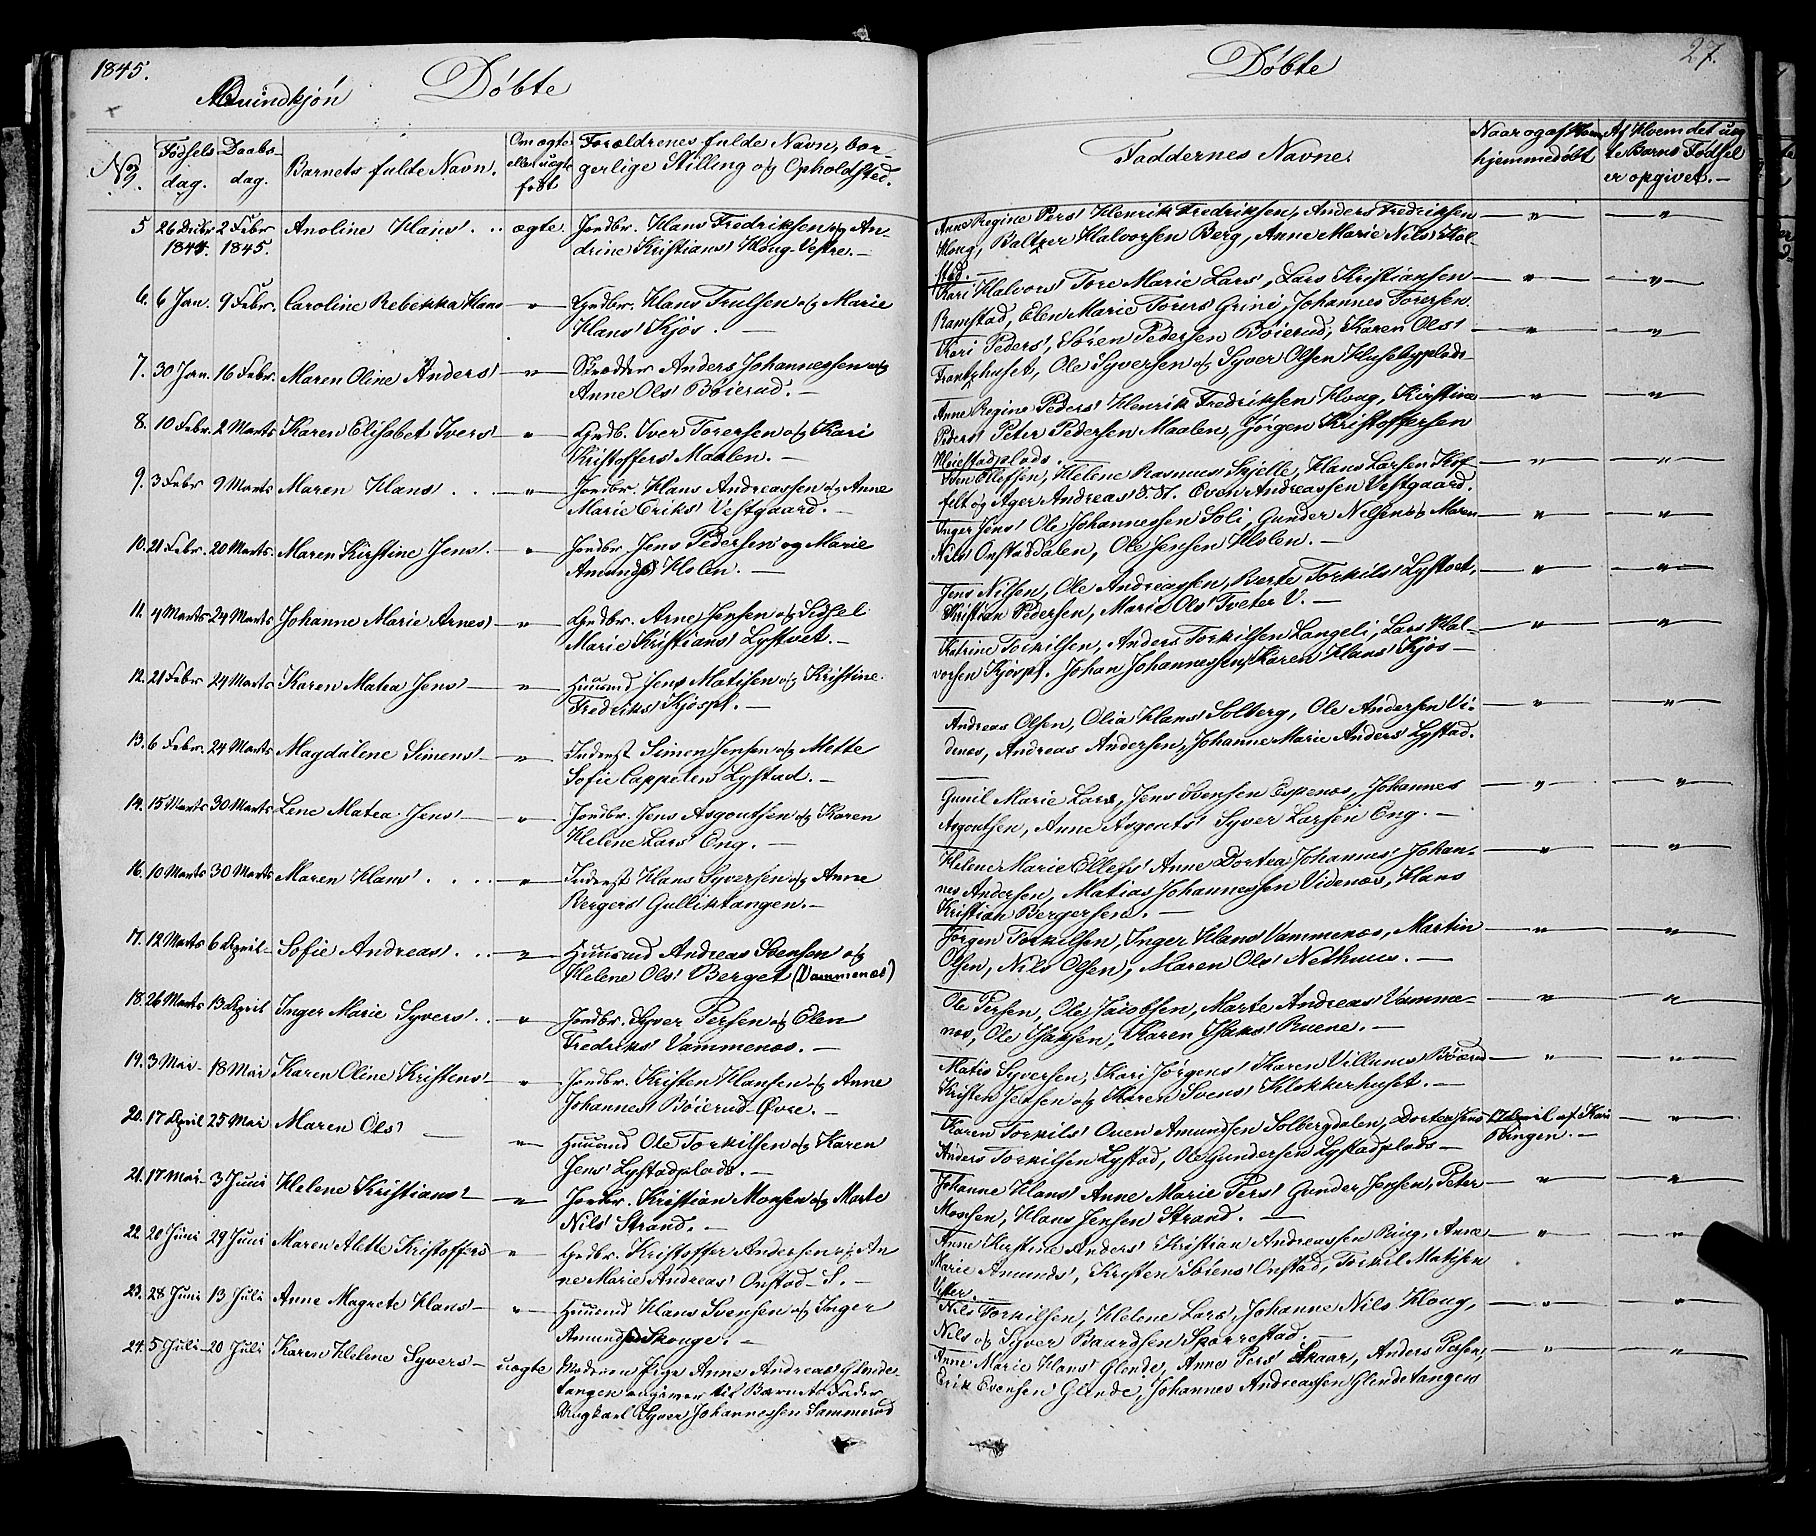 1845.
Døbte
Qvindkjön
No.
Födsels dag.
Daabs- dag.
Barnets fulde Navn.
Om ægte eller uægte født
Forældrenes fulde Navn, bor-
gerlige Stilling og Opholdsted.
5 26 Decbr 2 Febr Anoline Hans' . . ægte. Jordbr. Hans Fredriksen og An-
1844. 1845. drine Kristians' Houg Vestre. —
6. 6 Jan. 9 Febr. Caroline Rebekka Hans " Grdbr. Hans Trulsen og Marie
Hans' Kjos. —
7. 30 Jan. 16 Febr. Maren Oline Anders' " Skrædder Anders Johannessen og
Anne Ols' Böierud. —
8. 10 Febr. 2 Marts Karen Elisabet Ivers' " Grdb. Iver Torersen og Kari
Kristoffers' Maalen. —
9. 3 Febr 9 Marts Maren Hans' . . . " Jordbr. Hans Andreassen og Anne
Marie Eriks' Vestgaard. —
10. 21 Febr. 20 Marts Maren Kirstine Jens'. " Jordbr. Jens Pedersen og Marie
Amunds' Holen. —
11. 4 Marts 24 Marts Johanne Marie Arnes' " Grdbr. Arne Jensen og Sidsel
Marie Kristians' Lystvet. —
12. 21 Febr 24 Marts Karen Matea Jens' " Huusmd Jens Matisen og Kristine
Fredriks' Kjospl. —
13. 6 Febr. 24 Marts Magdalene Simens' " Inderst Simon Jensen og Mette
Sofie Cappelen Lystad. —
14. 15 Marts 30 Marts Lene Matea Jens' " Jordbr. Jens Asgoutsen og Karen
Helene Lars' Eng. —
16. 10 Marts 30 Marts Maren Hans' . . . . " Inderst Hans Syversen og Anne
Bergers' Gulliktangen. —
17. 12 Marts 6 April Sofie Andreas' . . . " Huusmd Andreas Svensen og
Helene Ols' Berget (Vammenæs)
18. 26 Marts 13 April Inger Marie Syvers' . " Jordbr. Syver Persen og Elen
Fredriks' Vammenæs. —
19. 3 Mai 18 Mai Karen Oline Kristens' " Jordbr. Kristen Hansen og Anne
Johannes' Böierud-Øvre. —
20. 17 April 25 Mai Maren Ols' — " Huusmd Ole Torkilsen og Karen
Jens' Lystadplads. —
21. 17 Mai 3 Juni Helene Kristians' " Jordbr. Kristian Monsen og Marte
Nils' Strand. —
22. 20 Juni 29 Juni Maren Alette Kristoffers " Grdbr. Kristoffer Andersen og An
ne Marie Andreas' Onstad S. —
23. 28 Juni 13 Juli Anne Magrete Hans " Huusmd Hans Svensen og Inger
Amunds' Skouge. —
24. 5 Juli 20 Juli Karen Helene Syvers uægte Moderen Pige Anne Andreas' Glende-
tangen angiven til Barnets Fader
Ungkarl Syver Johannessen Sammerud
27.
Døbte
Faddernes Navne.
Naar og af Hvem
hjemmedøbt
Af Hvem det uæg
te Barns Fødsel
er opgivet. —
Anne Regine Pers' Henrik Fredriksen, Anders Fredriksen
Houg, Baltzer Halvorsen Berg, Anne Marie Nils' Kol-
stad. —
Kari Halvors' Tore Marie Lars', Lars Kristiansen
Ramstad, Elen Marie Torers' Grini, Johannes Torersen
Kari Peders', Søren Pedersen Böierud, Karen Ols'
Frantzhuset, Ole Syversen og Syver Olsen Husebyplads
Anne Regine Peders' Henrik Fredriksen Houg, Kirstine
Peders' Peter Pedersen Maalen, Jörgen Kristoffersen
Höiestadplads.
Iver Ellefsen, Helene Rasmus' Skjelle, Hans Larsen Kof
felt og Ager Andreas' S. St. Even Andreassen Vestgaard.
Inger Jens' Ole Johannessen Soli, Gunder Nilsen og Maren
Nils' Onstaddalen, Ole Jensen Holen. —
Jens Nilsen, Ole Andreassen, Berte Torkils' Lystvet,
Kristian Pedersen, Marie Ols' Tveter V. —
Katrine Torkilsen, Anders Torkilsen Langeli, Lars Hal-
vorsen Kjospl. Johan Johannessen, Karen Hans' Kjos —
Andreas Olsen, Olia Hans' Solberg, Ole Andersen Vi-
denæs, Andreas Andersen, Johanne Marie Anders' Lystad.
Gunil Marie Lars', Jens Svensen Espenæs, Johannes
Asgoutsen, Anne Asgouts' Syver Larsen Eng. —
Helene Marie Ellefs' Anne Dortea Johannes' Johan-
nes Andersen, Matias Johannessen Videnæs, Hans
Kristian Bergersen. —
Jörgen Torkilsen, Inger Hans' Vammenæs, Martin
Olsen, Nils Olsen, Maren Ols' Nethuus. —
Ole Persen, Ole Jacobsen, Marte Andreas' Vamme-
næs, Ole Isaksen, Karen Isaks' Ruene. —
Matis Syversen, Kari Jörgens' Karen Villums' Böierud
Kristen Jensen og Karen Svens' Klokkerhuset. —
Karen Torkils' Ouen Amundsen Solbergdalen, Dortea Jens 17 April af Kari
Anders Torkilsen Lystad, Ole Gundersen Lystadplads — Bingen. —
Johanne Hans' Anne Marie Pers' Gunder Jensen, Peter
Monsen, Hans Jensen Strand. —
Anne Kirstine Anders' Kristian Andreassen Ring, Anne
Marie Amunds', Kristen Sörens' Onstad, Torkil Matisen
Vister.
Nils Torkilsen, Helene Lars', Johanne Nils' Houg,
Nils og Syver Baardsen Skorrestad. —
Anne Marie Hans' Glende, Anne Pers' Skaar, Anders Persen,
Erik Evensen Glende, Johannes Andreassen Glendetangen